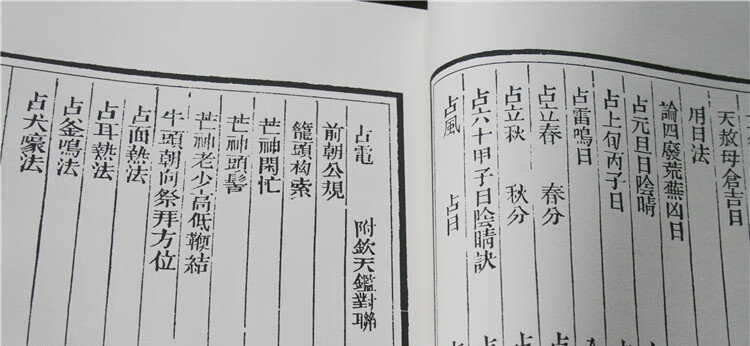 天赦母倉吉日
用日法
論四廢荒蕪凶日
占元旦日陰晴
占上旬丙子日
占雷鳴日
占立春 春分
占立秋 秋分
占六十甲子日陰晴訣
占風 占日
占電 附欽天鑑對聯
前朝公規
籠頭构索
芒神閑忙
芒神頭髻
芒神老少高低鞭結
牛頭朝向祭拜方位
占面熱法
占耳熱法
占釜鳴法
占犬嚎法